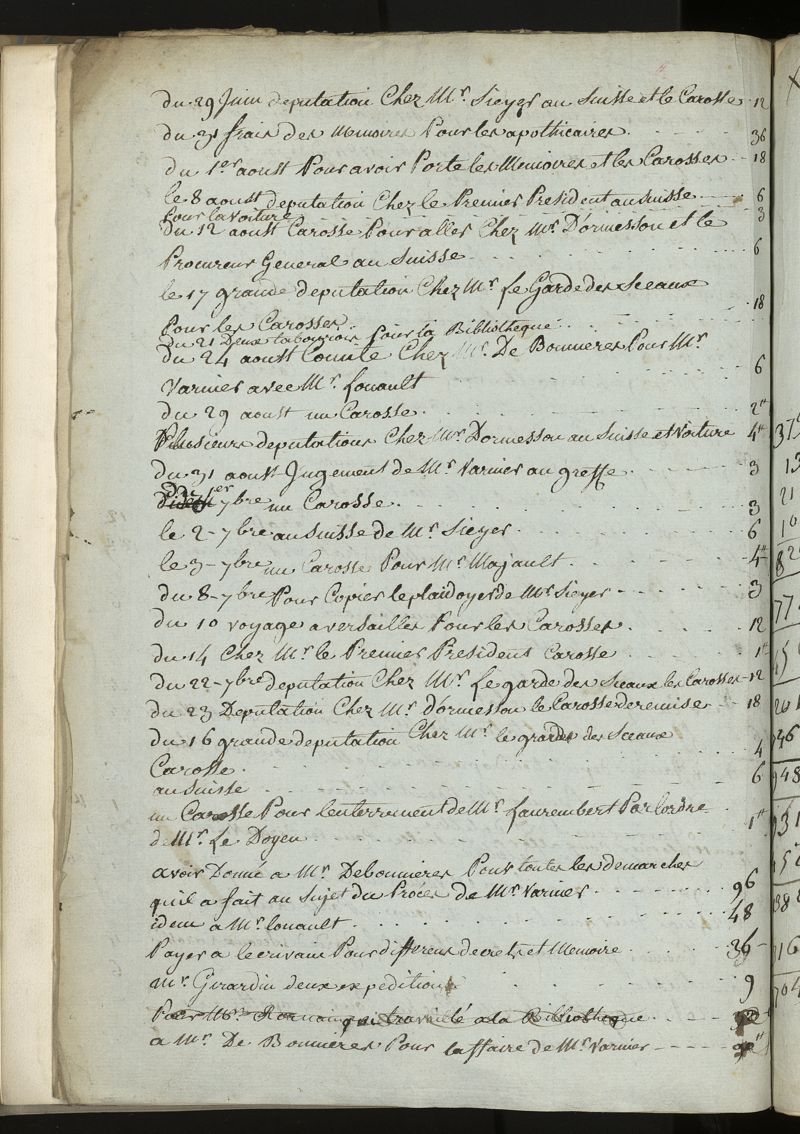 du 29 Juin deputation Chez Mr. Sieyer au Suisse et le Carosse - 12
du 31 frais des Memoires Pour les apothicaires. - - - - 36
du 1.er aoust Pour avoir Porte les Memoires et les Carosses - - 18
le 8 aoust deputation Chez le Premier President au Suisse - - - - 6
Pour la voiture - - - - 3
du 12 aoust Carosse Pour aller Chez Mr. D'ormesson et le
Procureur General au Suisse - - - - 6
le 17 grande deputation Chez Mr. Le Garde des Sceaux
Pour les Carosses - - - - 18
du 21 Deux pour la Bibliotheque
du 24 aoust Comte Chez Mr. De Bonnieres Pour Mr.
Varnier avec Mr. Louault - - 6
du 29 aoust un Carosse - - - - 2"
Plusieurs deputations Chez Mr. Dormesson au Suisse et Voiture 4"
du 31 aoust Jugement de Mr. Varnier au greffe - - - - 3
Du 1er 7bre un Carosse - - - - 3
le 2 - 7bre au Suisse de Mr. Sieyer - - - - 6
le 3 - 7bre un Carosse Pour Mr. Majault - - - - 4"
du 8 - 7bre Pour Copier le plaidoyer de Mr. Sieyer - - - - 3
du 10 voyage a versailles Pour les Carosses - - - - 12
du 14 Chez Mr. le Premier President Carosse - - - - 1"
du 22 - 7bre deputation Chez Mr. Le garde des Sceaux les Carosses - 12
du 23 Deputation Chez Mr. dormesson le Carosse de remise - - 18
du 16 grande deputation Chez Mr. le garde des Sceaux
Carosse - - - - 4
au Suisse - - - - 6
un Carosse Pour lenterrement de Mr. Laurembert Par lordre
de Mr. Le Doyen - - - - 1"
avoir Donne a Mr. Debonnieres Pour toutes les demarches
quil a fait au Sujet du Procés de Mr. Varnier - - - - 96
idem a Mr. louault - - - - 48
Payer a lecrivain Pour differens decrets et Memoire - - - - 36 -
mr. Girardin deux expeditions - - - - 9
Pour Mr. qui travaillé a la Bibliotheque
a Mr. De Bonnieres Pour laffaire de Mr. Varnier - - - -